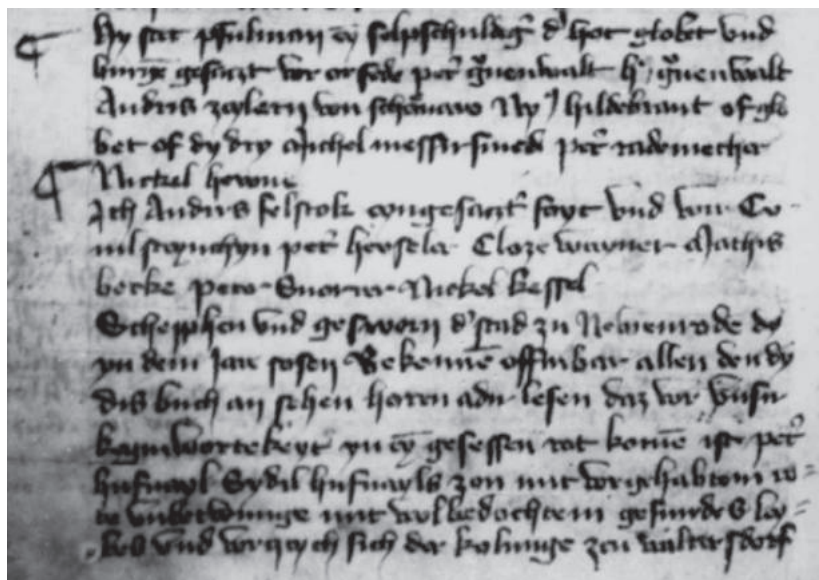 Hy stat pfulman ey selpschuldeger d' hot globet vnd
burge gesaczt vor orfede pet' grunenwalt h' grunenwalt
Andris zeylern von schonaw Ny' hildebrant of glo
bet of dy dry Michel messirsmed pet' rademecher
Nickel
Ich Andris felstok eyngesaczt' foyt vnd wir Cu
nil pet' Cloze wayner Mathis
becke Peter Nickel kessel
Schepphen vnd gesworn d' stad zu Newenrode dy
yn dem Jare sosen Bekenne offinbar allen den dy
dis buch an sehen horen adir lesen daz vor vnsir
keginwortekeyt yn eyn gesessen rat kome ist pet'
hufnayl Sydil hufnayls zon mit vorgehabtem ro
te vnbetwunge mit wolbedochtem gesundes ley
bes vnd vorczych sich der kolunge zcu waltersdorf